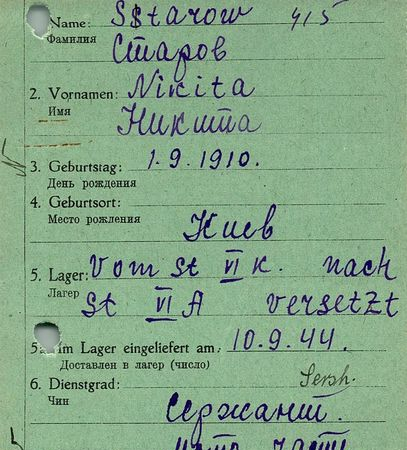 Name: Sstarow 415
Фамилия
Старов
2. Vornamen: Nikita
Имя
Никита
3. Geburtstag: 1.9.1910.
День рождения
4. Geburtsort:
Место рождения
Киев
5. Lager: Vom St VI K. nach
Лагер
St VI A versetzt
5a. Im Lager eingeliefert am: 10.9.44.
Доставлен в лагер (число)
6. Dienstgrad: Sersh.
Чин
Сержант.